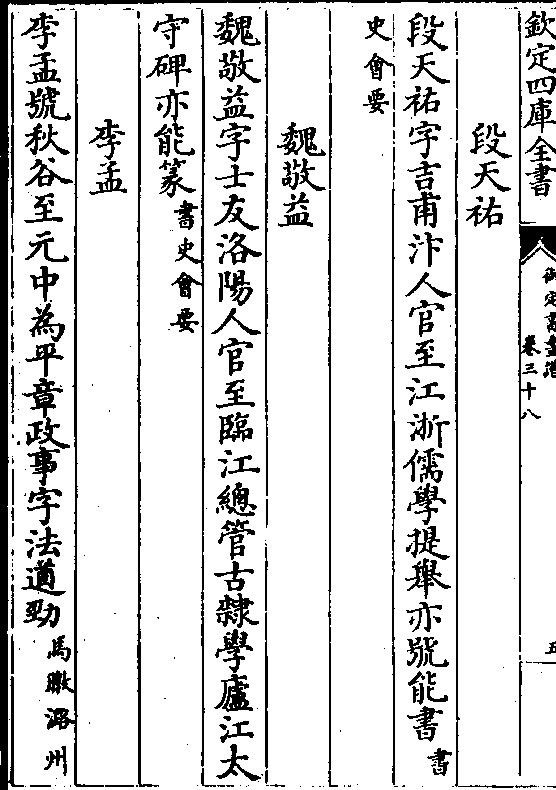 欽定四庫全書
御定書畫譜
卷三十八
五
段天祐
段天祐字吉甫汴人官至江浙儒學提舉亦號能書書
史會要
魏敬益
魏敬益字士友洛陽人官至臨江總管古隸學廬江太
守碑亦能篆書史會要
李孟
李孟號秋谷至元中為平章政事字法遒勁馬暾潞州